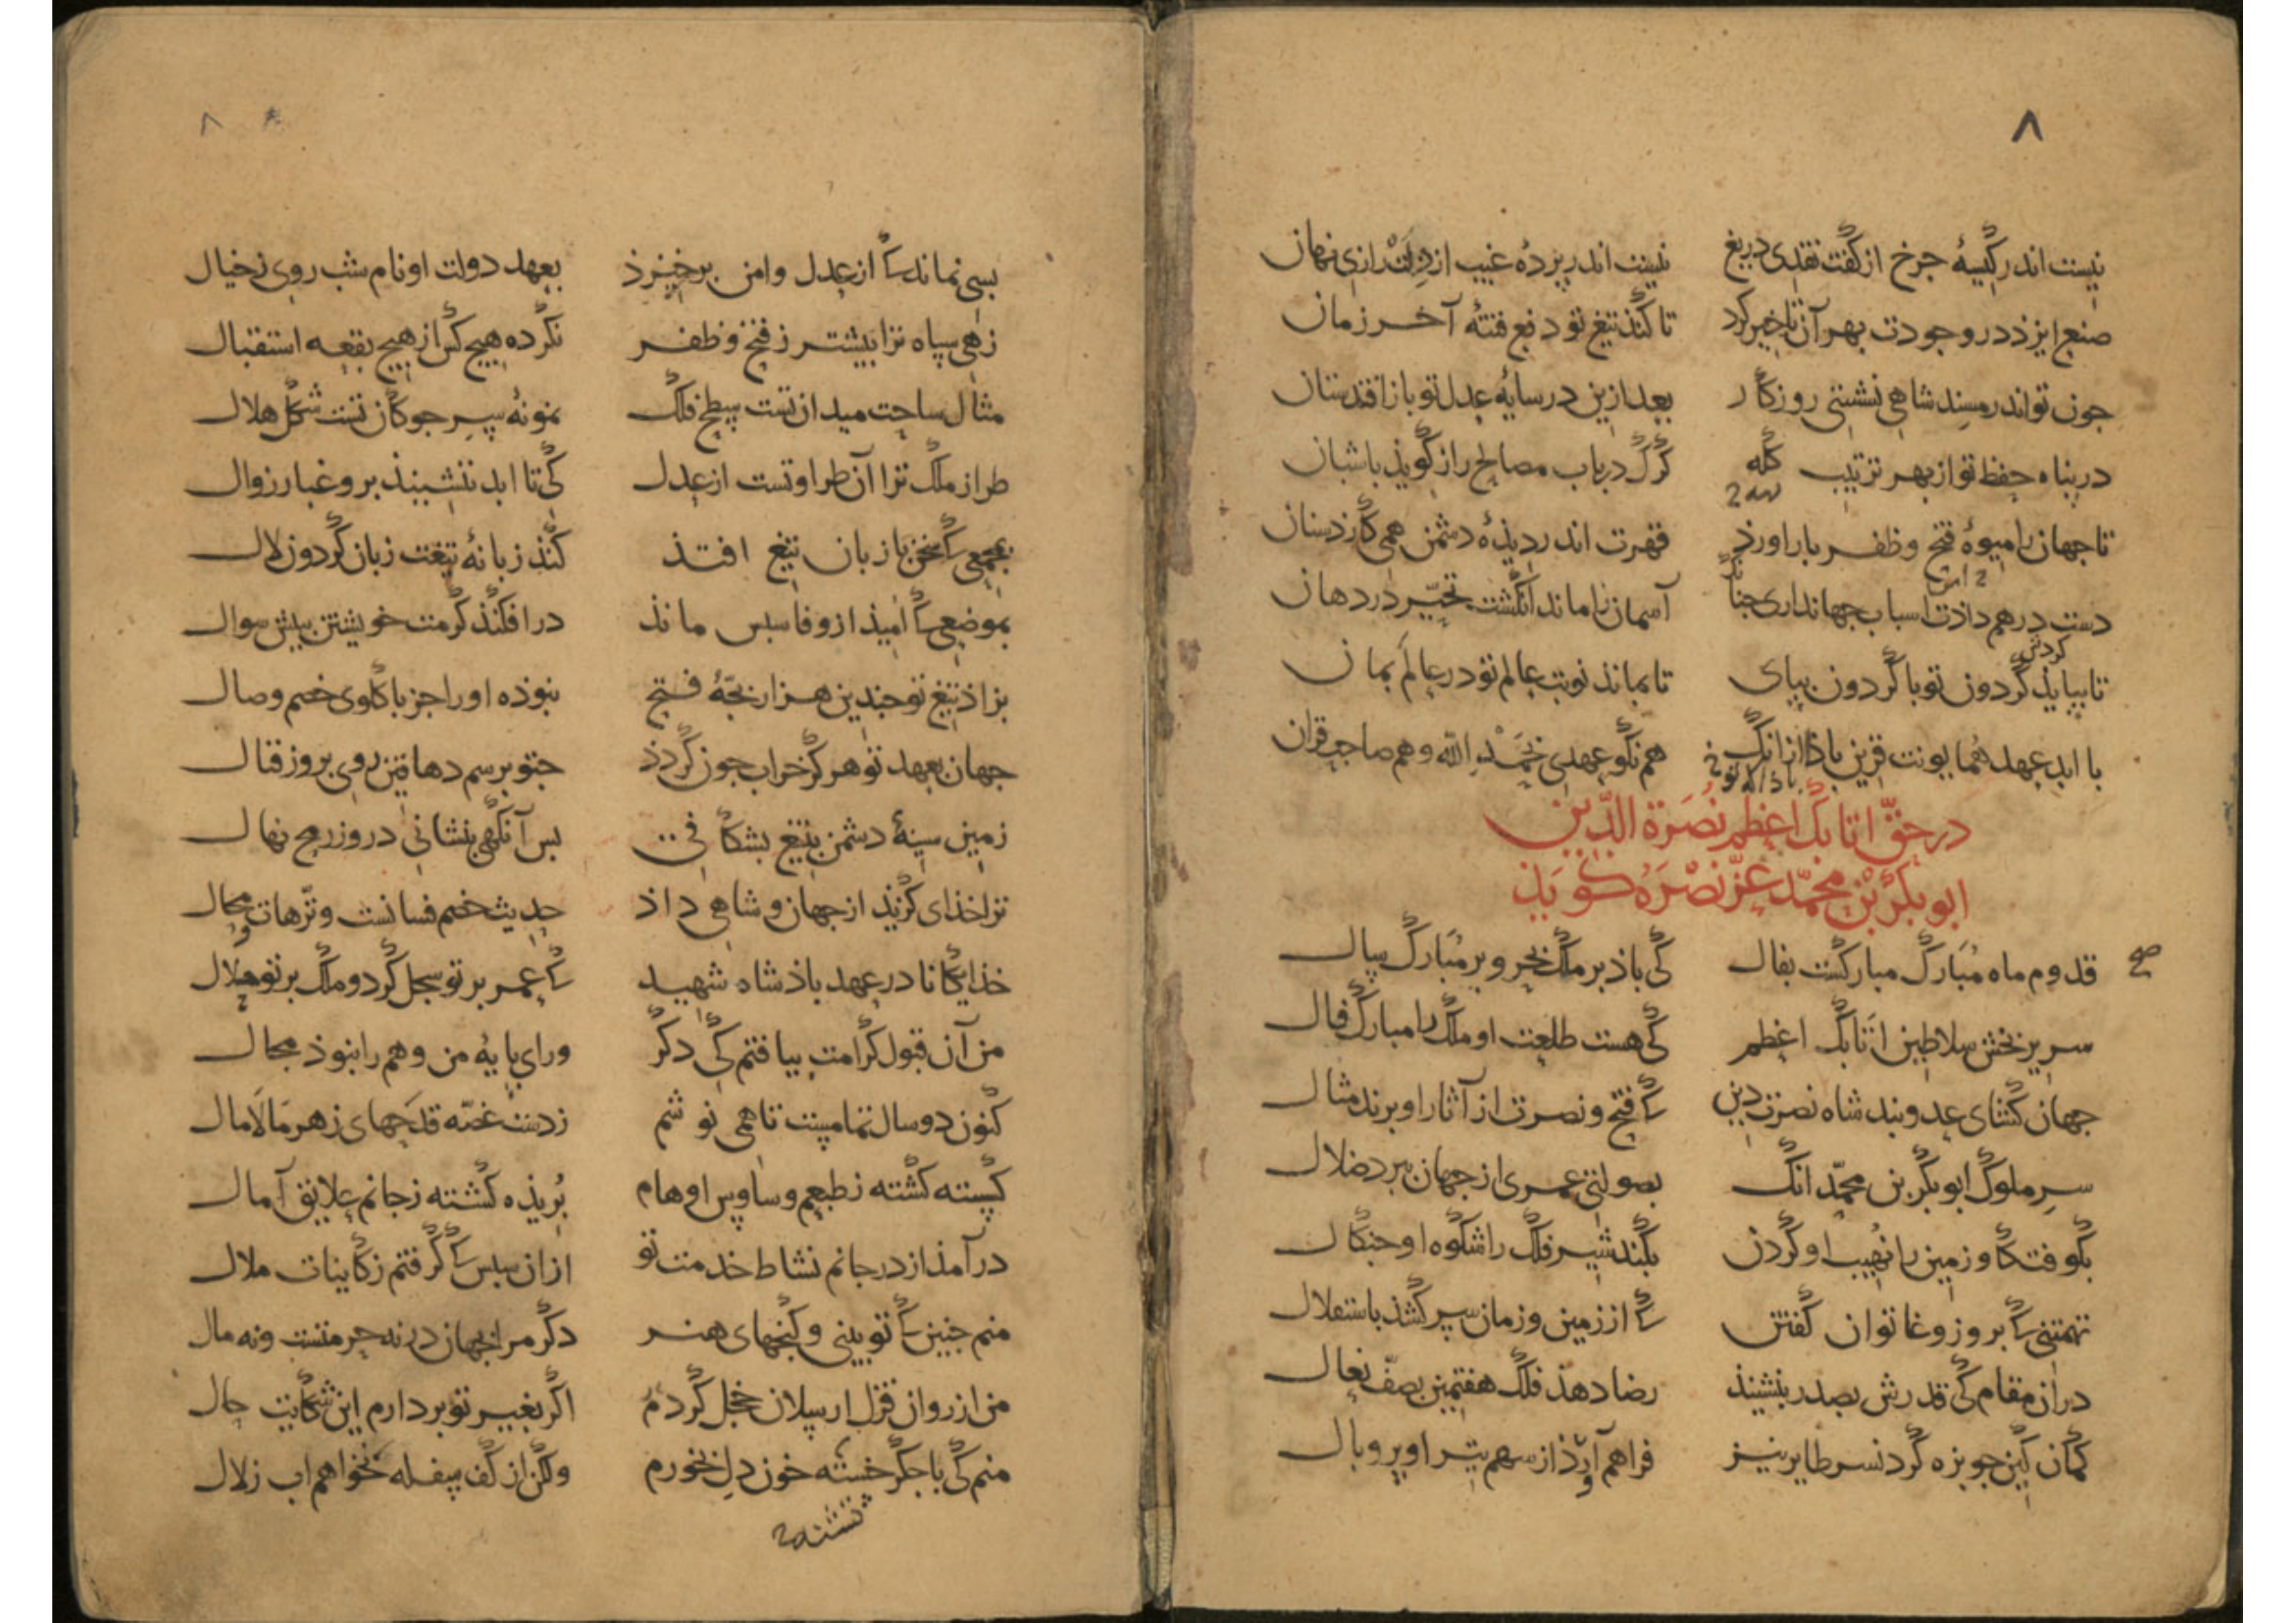 ۸
نیست اندر کیسهٔ جرخ از کفت نقدی دریغ نیست اندر پردهٔ غیب از دلت رازی نهان
صنع ایزد در وجودت بهر آن تاخیر کرد تا کند تیغ تو دفع فتنهٔ آخر زمان
جون تو اندر مسند شاهی نشستی روزکار بعد ازین در سایهٔ عدل تو باز افتد ستان
در پناه حفظ تو از بهر ترتیب کله کرک در باب مصالح راز کوید با شبان
تا جهان را میوهٔ فتح و ظفر بار اورد قهرت اندر دیذهٔ دشمن همی کارد سنان
دست در هم داذت اسباب جهانداری جنانک آسمان را ماند انکشت تحیّر در دهان
کردش
تا بپایذ کردون تو با کردون بپای تا بماند نوبت عالم تو در عالم بمان
با ابد عهد همایونت قرین باذا از انک هم نکو عهدی بحمد الله و هم صاحب قران
در حقّ اتابک اعظم نصرة الدّین
ابوبکر بن محمّد عزّ نصره کوید
صح
قدوم ماه مبارک مبارکست بفال کی باذ بر ملک بحر و بر مبارک سال
سریر بخش سلاطین اتابک اعظم کی هست طلعت او ملک را مبارک فال
جهان کشای عدو بند شاه نصرت دین ک فتح و نصرت از آثار او برند مثال
سر ملوک ابوبکر بن محمّد انک بصولتی عمری از جهان ببرد ضلال
بکوفت کاو زمین را نهیب او کردن بکند شیر فلک را شکوه او جنکال
تهمتنی ک بروز وغا توان کفتن ک از زمین و زمان سر کشذ باستقلال
دران مقام کی قدرش بصدر بنشیند رضا دهذ فلک هفتمین بصفّ نعال
کمان کین جو بزه کرد نسر طایر نیز فراهم آورذ از سهم تیر او پر و بال
۸
بسی نماند ک از عدل و امن برخیزذ بعهد دولت او نام شب روی ز خیال
زهی سپاه ترا بیشتر ز فتح و ظفر نکرده هیچ کس از هیچ بقعه استقبال
مثال ساحت میدان تست سطح فلک نمونهٔ سر جوکان تست شکل هلال
طراز ملک ترا آن طراوتست از عدل کی تا ابد ننشیند برو غبار زوال
بمجمعی ک سخن با زبان تیغ افتذ کند زبانهٔ تیغت زبان کردون لال
بموضعی ک امیذ از وفا سبس ماند درافکند کرمت خویشتن بیش سوال
بزاد تیغ تو جندین هزار بجّهٔ فتح نبوذه او را جز با کلوی خصم وصال
جهان بعهد تو هرکز خراب جون کردذ جو تو برسم دهاقین روی بروز قتال
زمین سینهٔ دشمن بتیغ بشکافی بس آنکهی بنشانی درو ز رمح نهال
ترا خذای کزید از جهان و شاهی داذ حدیث خصم فسانست و ترّهات محال
خذایکانا در عهد باذشاه شهید ک عمر بر تو سجل کرد و ملک بر تو حلال
من آن قبول کرامت بیافتم کی دکر ورای پایهٔ من وهم را نبوذ مجال
کنون دو سال تمامست تا همی نوشم ز دست غصّه قدحهای زهر مالامال
کسسته کشته ز طبعم وساوس اوهام بریذه کشته ز جانم علایق آمال
درآمذ از در جانم نشاط خدمت تو ازان سبس ک کرفتم ز کاینات ملال
منم جنین ک تو بینی و کنجهای هنر دکر مرا بجهان در نه حرمتست و نه مال
من از روان قزل ارسلان خجل کردم اکر بغیر تو بردارم این شکایت حال
منم کی با جکر خسته خون دل بخورم ولکن از کف سفله نخواهم اب زلال
تشنه